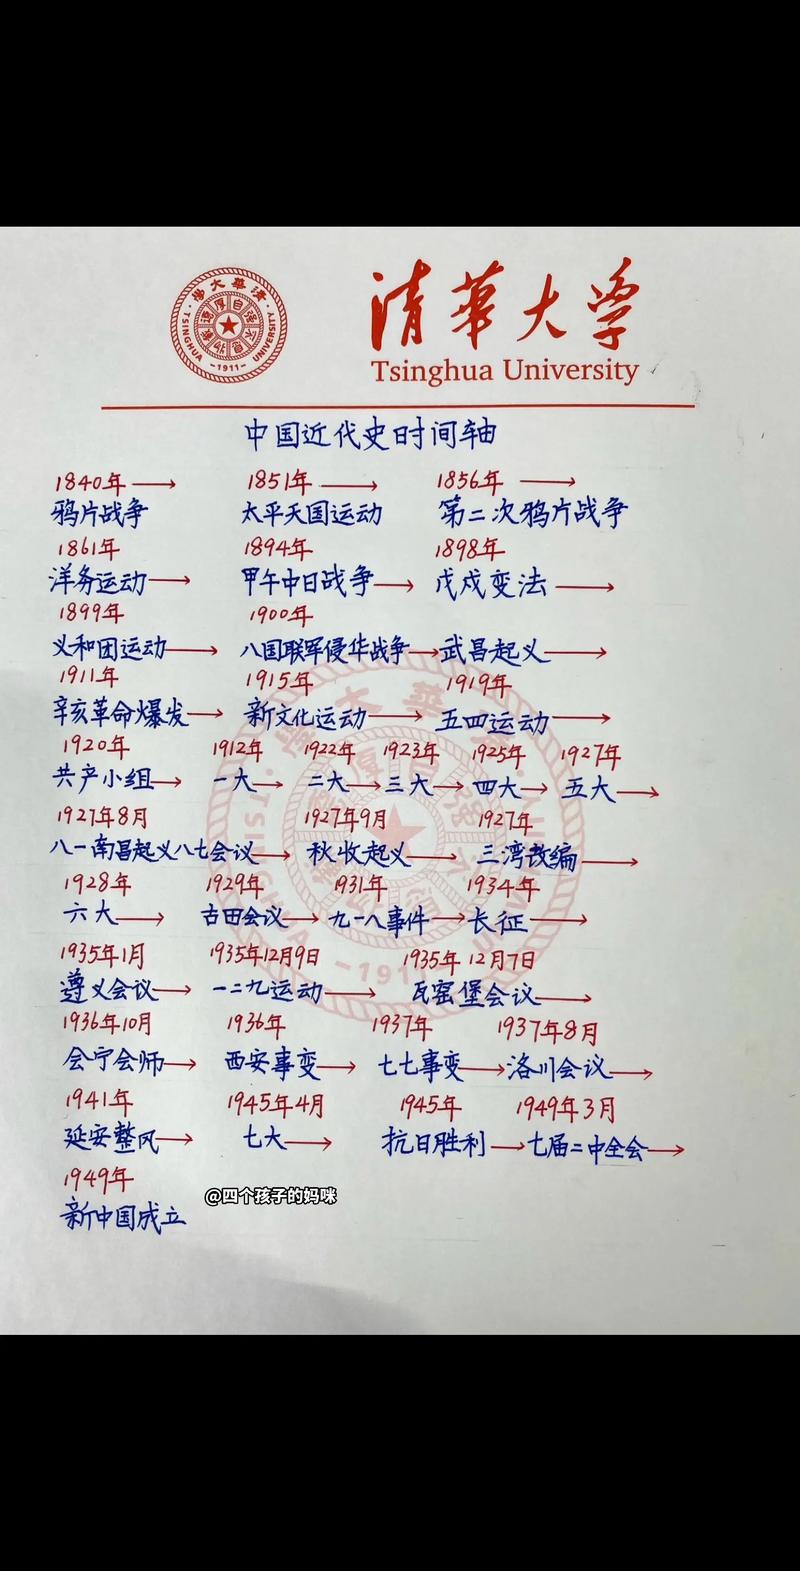 清華大学
Tsinghua University
TSINGHUA UNIVERSITY
-1911-
中国近代史时间轴
1840年→ 1851年→ 1856年→
鸦片战争 太平天国运动 第二次鸦片战争
1861年 1894年 1898年
洋务运动→ 甲午中日战争→ 戊戌变法→
1899年 1900年
义和团运动→ 八国联军侵华战争→武昌起义→
1911年 1915年 1919年
辛亥革命爆发→ 新文化运动→ 五四运动→
1920年 1912年 1922年 1923年 1925年 1927年
共产小组→ 一大→ 二大→三大→ 四大→ 五大→
1927年8月 1927年9月 1927年
八一南昌起义八七会议→ 秋收起义→ 三湾改编→
1928年 1929年 1931年 1934年
六大→ 古田会议→ 九一八事件→长征→
1935年1月 1935年12月9日 1935年12月7日
遵义会议→ 一二九运动→ 瓦窑堡会议→
1936年10月 1936年 1937年 1937年8月
会宁会师→ 西安事变→ 七七事变→洛川会议→
1941年 1945年4月 1945年 1949年3月
延安整风→ 七大→ 抗日胜利→七届二中全会→
1949年
@四个孩子的妈咪
新中国成立